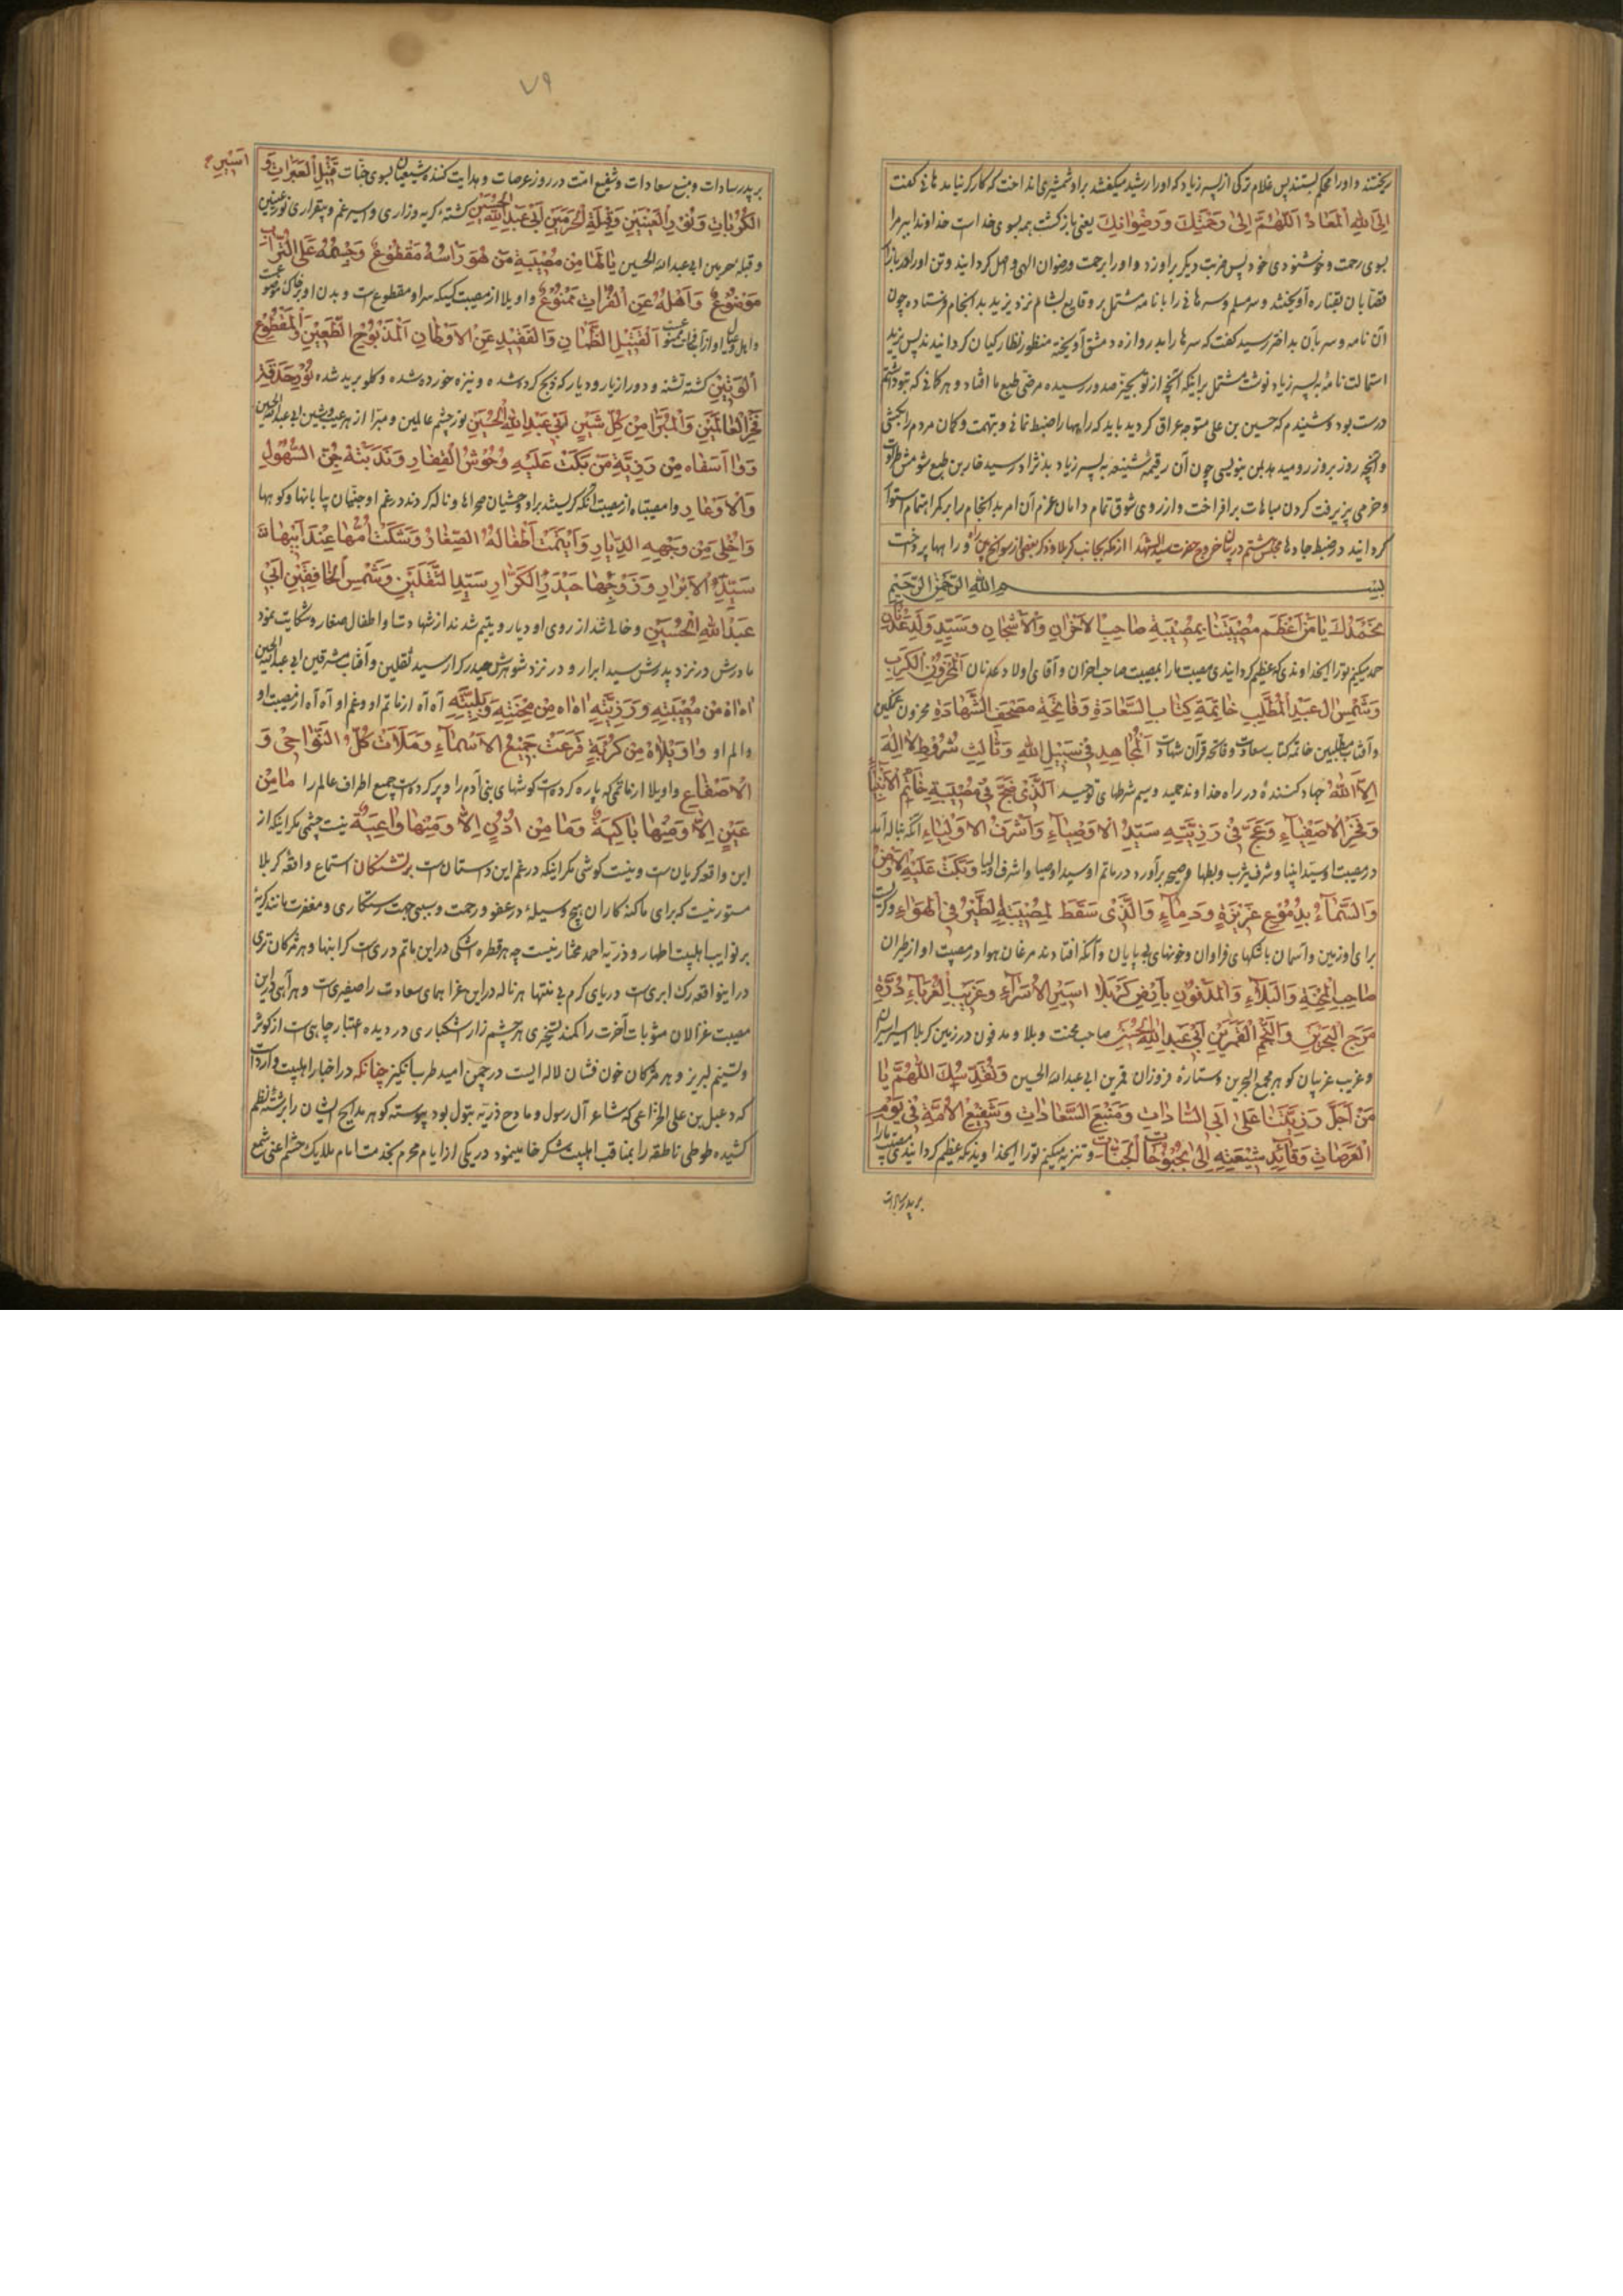 ریختند و او را محکم بستند پس غلام ترکی از پسر زیاد که او را رشید میکفتند بر او شمشیری انداخت که کارکر نیامد هانی کفت
اِلَی اللهِ الْمَعادُ اَللّهُمَّ اِلی رَحْمَتِكَ وَ رِضْوانِكَ یعنی بازکشت همه بسوی خدا است خداوندا ببر مرا
بسوی رحمت و خوشنودی خود پس ضربت دیکر بر او زد و او را برحمت و رضوان الهی واصل کردانید و تن او را در بازار
قصابان بقناره آویختند و سر مسلم و سر هانی را با نامه مشتمل بر وقایع بشام نزد یزید بد انجام فرستاده چون
آن نامه و سر بآن بد اختر رسید کفت که سرها را بدروازه دمشق آویخته منظور نظارکیان کردانیدند پس یزید
استمالت نامه به پسر زیاد نوشت مشتمل بر اینکه آنچه از تو بحیز صدور رسیده مرضی طبع ما افتاد و هر کمانی که بتو داشتم
درست بود و شنیدم که حسین بن علی متوجه عراق کردید باید که راهها را ضبط نمائی و بتهمت و کمان مردم را بکشی
و آنچه روز بروز رو میدهد بمن بنویسی چون آن رقیمه شنیعه به پسر زیاد بد نژاد رسید
و خرمی پذیرفت کردن مباهات برافراخت و از روی شوق تمام دامان عزم آن امر بد انجام را بر کمر اهتمام استوار
کردانید در ضبط جادها مجلس هشتم در بیان خروج حضرت سید الشهدا از مکه بجانب کربلا و ذکر بعضی از سوانح و راهها پرداخت
بسم الله الرحمن الرحیم
نَحْمَدُكَ یا مَنْ اَعْظَمَ مُصیبَتَنا بِمُصیبَةِ صاحِبِ الْاَحْزانِ وَ الْاَشْجانِ وَ سَیِّدِ وُلْدِ عَدْنانِ
حمد میکنیم تو را ایخداوندی که عظیم کردانیدی مصیبت ما را بمصیبت صاحب احزان و آقای اولاد عدنان اَلْمَحْزُونِ الْکَرِبِ
وَ شَمْسِ الِ عَبْدِ الْمُطَّلِبِ خاتِمَةِ کِتابِ السَّعادَةِ وَ فاتِحَةِ مُصْحَفِ الشَّهادَةِ محزون غمکین
و آفتاب مطلبیین خاتمه کتاب سعادت و فاتحه قرآن شهادت اَلْمُجاهِدِ فی سَبیلِ اللهِ وَ ثالِثِ شُرُوطِ لا اِلهَ
اِلاَّ اللهُ جهاد کننده در راه خداوند حمید و سیم شرطهای توحید اَلَّذی ضَجَّ فی مُصیبَتِهِ خاتَمُ الْاَنْبِیا
وَ فَخْرُ الْاَصْفِیآءِ وَ عَجَّ فی رَزِیَّتِهِ سَیِّدُ الْاَوْصِیآءِ وَ اَشْرَفُ الْاَوْلِیآءِ آنکه بناله آمد
در مصیبت او سید انبیا و شرف یثرب و بطحا و ضجه برآورد در ماتم او سید اوصیا و اشرف اولیا وَ بَکَتْ عَلَیْهِ الْاَرْضُ
وَ السَّمآءُ بِدُمُوعٍ غَزیرَةٍ وَ دِمآءٍ وَ الَّذی سَقَطَ لِمُصیبَتِهِ الطَّیْرُ فِی الْهَوآءِ و کریست
برای او زمین و آسمان باشکهای فراوان و خونهای بی پایان و آنکه افتادند مرغان هوا در مصیبت او از طیران
صاحِبِ الْمِحْنَةِ وَ الْبَلآءِ وَ الْمَدْفُونِ بِاَرْضِ کَرْبَلا اَسیرِ الْاُسَرآءِ وَ غَریبِ الْغُرَبآءِ دُرَّةِ
مَرَجَ الْبَحْرَیْنِ وَ النَّجْمِ الْقَمَرَیْنِ اَبی عَبْدِ اللهِ الْحُسَیْنِ صاحب محنت و بلا و مدفون در زمین کربلا اسیر اسیران
و غریب غریبان کوهر مجمع البحرین و ستاره فروزان قمرین ابی عبد الله الحسین وَ نُقَدِّسُكَ اللّهُمَّ یا
مَنْ اَجَلَّ رَزِیَّتَنا عَلی اَبِی السّاداتِ وَ مَنْبَعِ السَّعاداتِ وَ شَفیعِ الْاُمَّةِ فی یَوْمِ
الْعَرَصاتِ وَ قآئِدِ شیعَتِهِ اِلی بُحْبُوحاتِ الْجَنّاتِ و تنزیه میکنیم تو را ایخداوندیکه عظیم کردانیدی مصیبت ما را
بر پدر سادات
۷۹
بر پدر سادات و منبع سعادات و شفیع امّت در روز عرصات و هدایت کننده شیعیان بسوی جنّات قَتیلِ الْعَبَراتِ وَ
اَسیرِ
الْکُرُباتِ وَ نُورِ الْعَیْنَیْنِ وَ قِبْلَةِ الْحَرَمَیْنِ اَبی عَبْدِ اللهِ الْحُسَیْنِ کشته کریه و زاری و اسیر غم و بیقراری نور عینین
و قبله حرمین ابی عبد الله الحسین یا لَها مِنْ مُصیبَةِ مَنْ هُوَ رَاْسُهُ مَقْطُوعٌ وَ جِسْمُهُ عَلَی التُّرابِ
مَوْضُوعٌ وَ اَهْلُهُ عَنِ الْفُراتِ مَمْنُوعٌ واویلا از مصیبت کسیکه سر او مقطوعست و بدن او بر خاک موضوعست
و اهل و عیال او از آب فرات ممنوعست اَلْقَتیلِ الظَّمْانِ وَ الْفَقیدِ عَنِ الْاَوْطانِ اَلْمَذْبُوحِ الطَّعینِ وَ الْمَقْطُوعِ
الْوَتینِ کشته تشنه و دور از یار و دیار که ذبح کرده شده و نیزه خورده شده و کلو برید شده نُورِ حَدَقَةِ
فَخْرِ الْعالَمینَ وَ الْمُبَرَّا مِنْ کُلِّ شَیْنٍ اَبی عَبْدِ اللهِ الْحُسَیْنِ نور چشم عالمین و مبرا از هر عیب و شین ابی عبد الله الحسین
وَ وا اَسَفاه مِنْ رَزِیَّةِ مَنْ بَکَتْ عَلَیْهِ وُحُوشُ الْقِفارِ وَ نَدَبَتْهُ جِنُّ السُّهُولِ
وَ الْاَوْعارِ وا مصیبتاه از مصیبت آنکه کریستند بر او وحشیان صحراها و ناله کردند در غم او جنّیان بیابانها و کوهها
وَ اَخْلی مِنْ وَجْهِهِ الدِّیارِ وَ اَیْتَمَتْ اَطْفالُهُ الصِّغارُ وَ شَکَتْ اُمُّها عِنْدَ اَبیها
سَیِّدِ الْاَبْرارِ وَ زَوْجِها حَیْدَرِ الْکَرّارِ سَیِّدِ الثَّقَلَیْنِ وَ شَمْسِ الْخافِقَیْنِ اَبی
عَبْدِ اللهِ الْحُسَیْنِ و خالی شد از روی او دیار و یتیم شدند از شهادتش اطفال صغار و شکایت نمود
مادرش در نزد پدرش سید ابرار و در نزد شوهرش حیدر کرار سید ثقلین و آفتاب مشرقین ابی عبد الله الحسین
اه اه مِنْ مُصیبَتِهِ وَ رَزِیَّتِهِ اه اه مِنْ مِحْنَتِهِ وَ بَلِیَّتِهِ آه آه از ماتم او و غم او آه آه از مصیبت او
و الم او وا وَیْلاهُ مِنْ کُرْبَةٍ قَرَعَتْ جَمیعَ الْاَسْماءِ وَ مَلَاَتْ کُلَّ النَّواحی وَ
الْاَصْقاعِ واویلا از ماتمی که پاره کرده است کوشهای بنی آدم را و پر کرده است جمیع اطراف عالم را ما مِنْ
عَیْنٍ اِلاّ وَ مِنْها باکِیَةٌ وَ ما مِنْ اُذُنٍ اِلاّ وَ مِنْها واعِیَةٌ نیست چشمی مکر اینکه از
این واقعه کریانست و نیست کوشی مکر اینکه در غم این داستانست بر تشنکان استماع واقعه کربلا
مستور نیست که برای ما کنه کاران هیچ وسیله در عفو و رحمت و سببی جهت رستکاری و مغفرت مانند کریه
بر نوایب اهلبیت اطهار و ذریّه احمد مختار نیست چه هر قطره اشکی در این ماتم دریست کرانبها و هر مژکان تری
در اینواقعه رک ابریست دریای کرم بی منتها هر ناله در این عزا همای سعادت را صفیریست و هر آهی در این
مصیبت غزالان مثوبات آخرت را کمند تسخیری هر چشم زار اشکباری در دیده اعتبار چاهیست از کوثر
و تسنیم لبریز و هر مژکان خون فشان لاله ایست در چمن امید طرب انکیز چنانکه در اخبار اهلبیت وارد است
که دعبل بن علی الخزاعی که شاعر آل رسول و مادح ذریّه بتول بود پیوسته کوهر مدایح ایشان را برشته نظم
کشیده طوطی ناطقه را بمناقب اهلبیت شکر خا مینمود در یکی از ایام محرم بخدمت امام ملایك حشم اعنی شمع